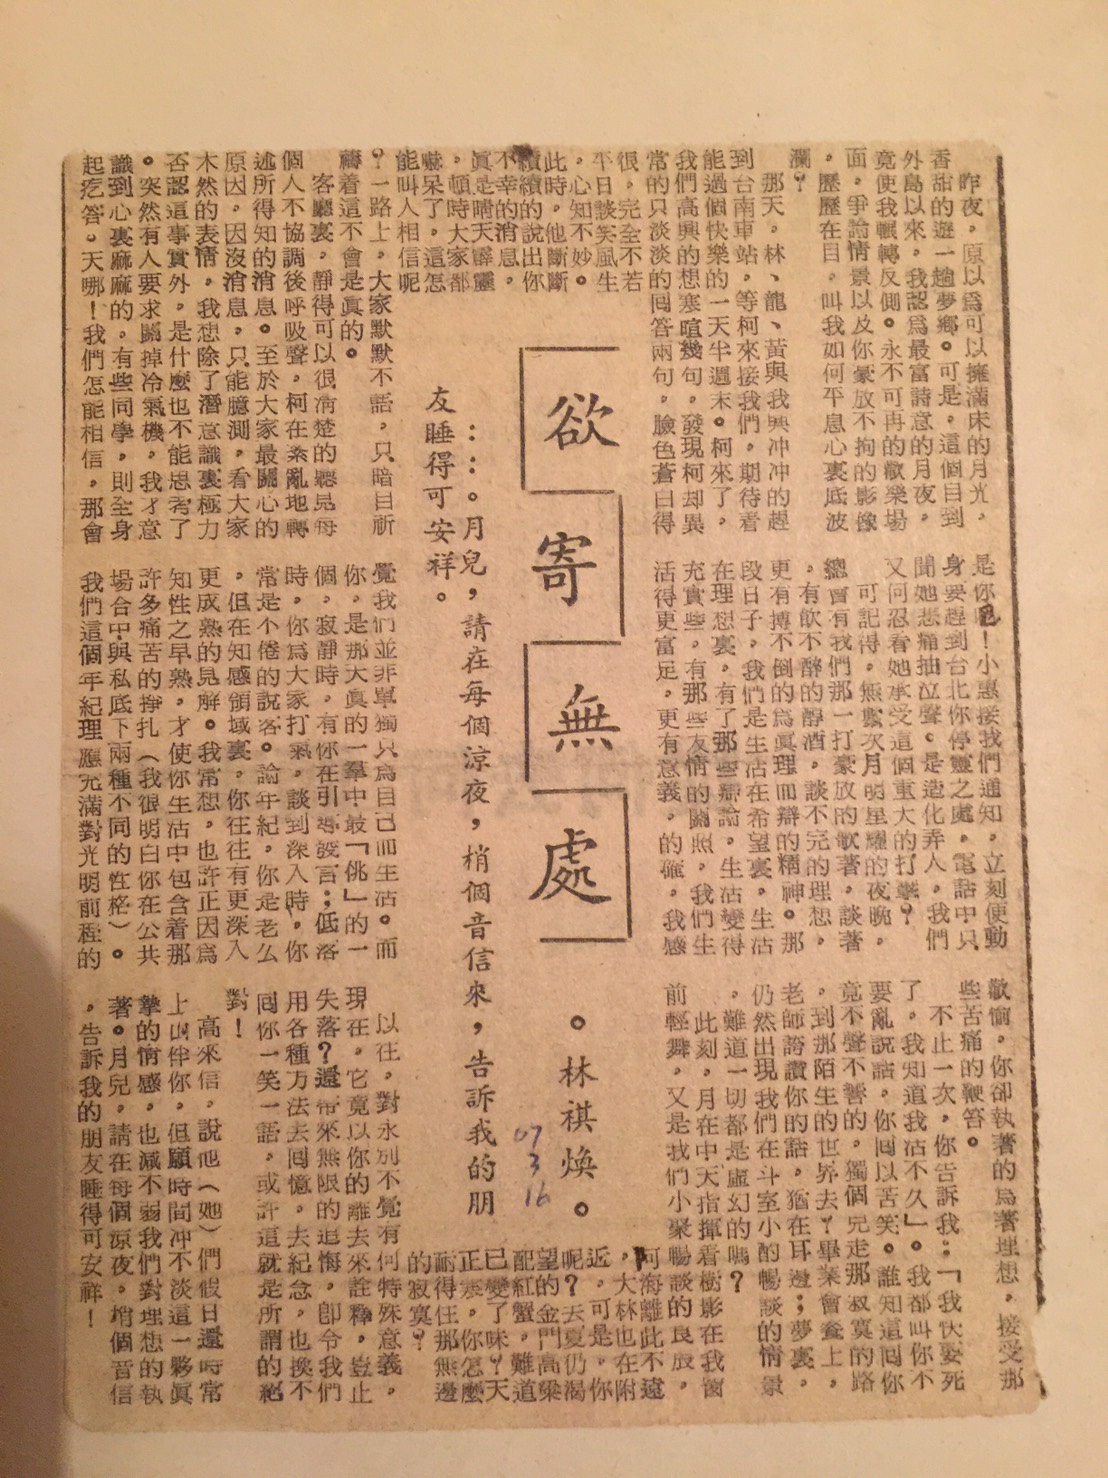 欲寄無處
。林祺煥。
07
3
16
：：。月兒，請在每個涼夜，梢個音信來，告訴我的朋
友睡得可安祥。
昨夜，原以為可以擁滿床的月光，
香甜的遊一趟夢鄉。可是，這個目到
外島以來，我認為最富詩意的月夜，
竟使我輾轉反側。永不可再的歡樂場
面，爭論情景以及你豪放不拘的影像
，歷歷在目，叫我如何平息心裏底波
瀾？
那天，林、龍、黃與我興冲冲的趕
到台南車站，等柯來接我們，期待着
能過個快樂的一天半週末。柯來了，
我們高興的想寒暄幾句，發現柯却異
常的只淡淡的囘答兩句，臉色蒼白得
很，完全不若
平日談笑風生
，心知不妙。
此時，他斷斷
續續的說出你
不幸的消息，
眞是晴天霹靂
，頓時大家都
嚇呆了，這怎
能叫人相信呢
？一路上，大家默默不語，只暗自祈
禱着這不會是眞的。
客廳裏，靜得可以很清楚的聽見每
個人不協調後呼吸聲，柯在紊亂地轉
述所得知的消息。至於大家最關心的
原因，因沒消息，只能臆測，看大家
木然的表情，我想除了潛意識裏極力
否認這事實外，是什麼也不能思考了
。突然有人要求關掉冷氣機，我才意
識到心裏麻麻的，有些同學，則全身
起疙答。天哪！我們怎能相信，那會
是你！小惠接我們通知，立刻便動
身要趕到台北你停靈之處，電話中只
聞她悲痛抽泣聲。是造化弄人，我們
又何忍看她承受這個重大的打擊？
可記得，無數次月明星耀的夜晚，
總會有我們那一打豪放的歌著，談著
，有飲不醉的醇酒，談不完的理想，
更有搏不倒的為眞理而辯的精神。那
段日子，我們是生活在希望裏，生活
在理想裏，有了那些辯論，生活變得
充實些，有那些友情的關照，我們生
活得更富足，更有意義，的確，我感
覺我們並非單獨只為自己而生活。而
你，是那天眞的一羣中最「佻」的一
個，寂靜時，有你在引導發言；低落
時，你為大家打氣，談到深入時，你
常是不倦的說客。論年紀，你是老么
，但在知感領域裏，你往往有更深入
更成熟的見解。我常想，也許正因為
知性之早熟，才使你生活中包含着那
許多痛苦的掙扎（我很明白你在公共
場合中與私底下兩種不同的性格）。
我們這個年紀理應充滿對光明前程的
歡愉，你卻執著的為著理想，接受那
些苦痛的鞭笞。
不止一次，你告訴我：「我快要死
了，我知道我活不久」。我都叫你不
要亂說話，你囘以苦笑。誰知這囘你
竟不聲不響的，獨個兒走那寂寞的路
，到那陌生的世界去？畢業會餐上，
老師誇讚你的話，猶在耳邊；夢裏，
仍然出現我們在斗室小酌暢談的情景
，難道一切都是虛幻的嗎？
此刻，月在中天指揮着樹影在我窗
前輕舞，又是我們小聚暢談的良辰，
阿海離此不遠
，大林也在附
近，可是，你
呢？去夏仍渴
望的金門高粱
配紅蟹，難道
已變了味？天
正寒，你怎麼
耐得住那無邊
的寂寞？
以往，對永別不覺有何特殊意義，
現在，它竟以你的離去來詮釋，豈止
失落？還帶來無限的追悔，卽令我們
用各種方法去囘憶，去紀念，也換不
囘你一笑一語，或許這就是所謂的絕
對！
高來信，說他（她）們假日還時常
上山伴你，但願時間冲不淡這一夥眞
摯的情感，也減不弱我們對理想的執
著。月兒，請在每個涼夜，梢個音信
，告訴我的朋友睡得可安祥！